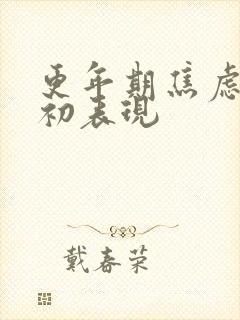 更年期焦虑
初表现
戴春荣